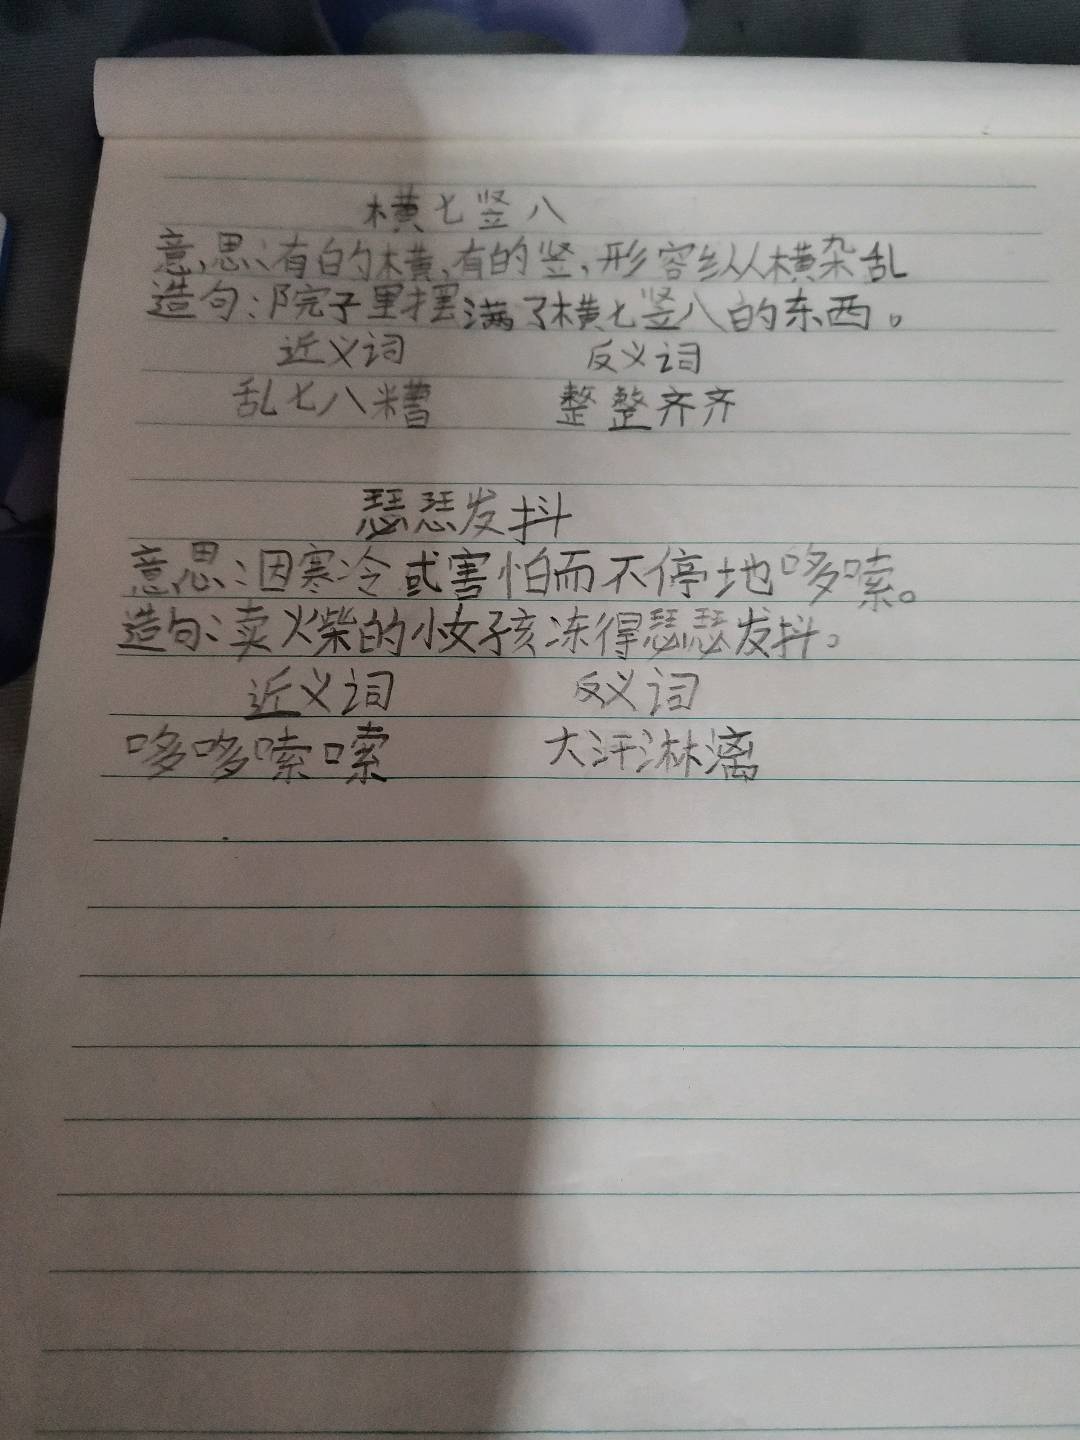 横七竖八
意思:有的横,有的竖,形容纵横杂乱
造句:院子里摆满了横七竖八的东西。
近义词 反义词
乱七八糟 整整齐齐
瑟瑟发抖
意思:因寒冷或害怕而不停地哆嗦。
造句:卖火柴的小女孩冻得瑟瑟发抖。
近义词 反义词
哆哆嗦嗦 大汗淋漓